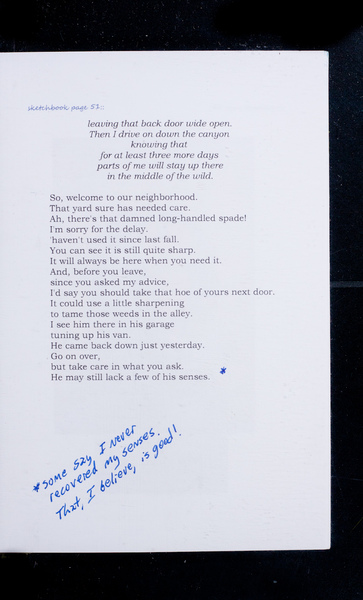 sketchbook page 51::
leaving that back door wide open.
Then I drive on down the canyon
knowing that
for at least three more days
parts of me will stay up there
in the middle of the wild.
So, welcome to our neighborhood.
That yard sure has needed care.
Ah, there's that damned long-handled spade!
I'm sorry for the delay.
'haven't used it since last fall.
You can see it is still quite sharp.
It will always be here when you need it.
And, before you leave,
since you asked my advice,
I'd say you should take that hoe of yours next door.
It could use a little sharpening
to tame those weeds in the alley.
I see him there in his garage
tuning up his van.
He came back down just yesterday.
Go on over,
but take care in what you ask.
He may still lack a few of his senses. *
*some say, I never
recovered my senses.
That, I believe, is good!